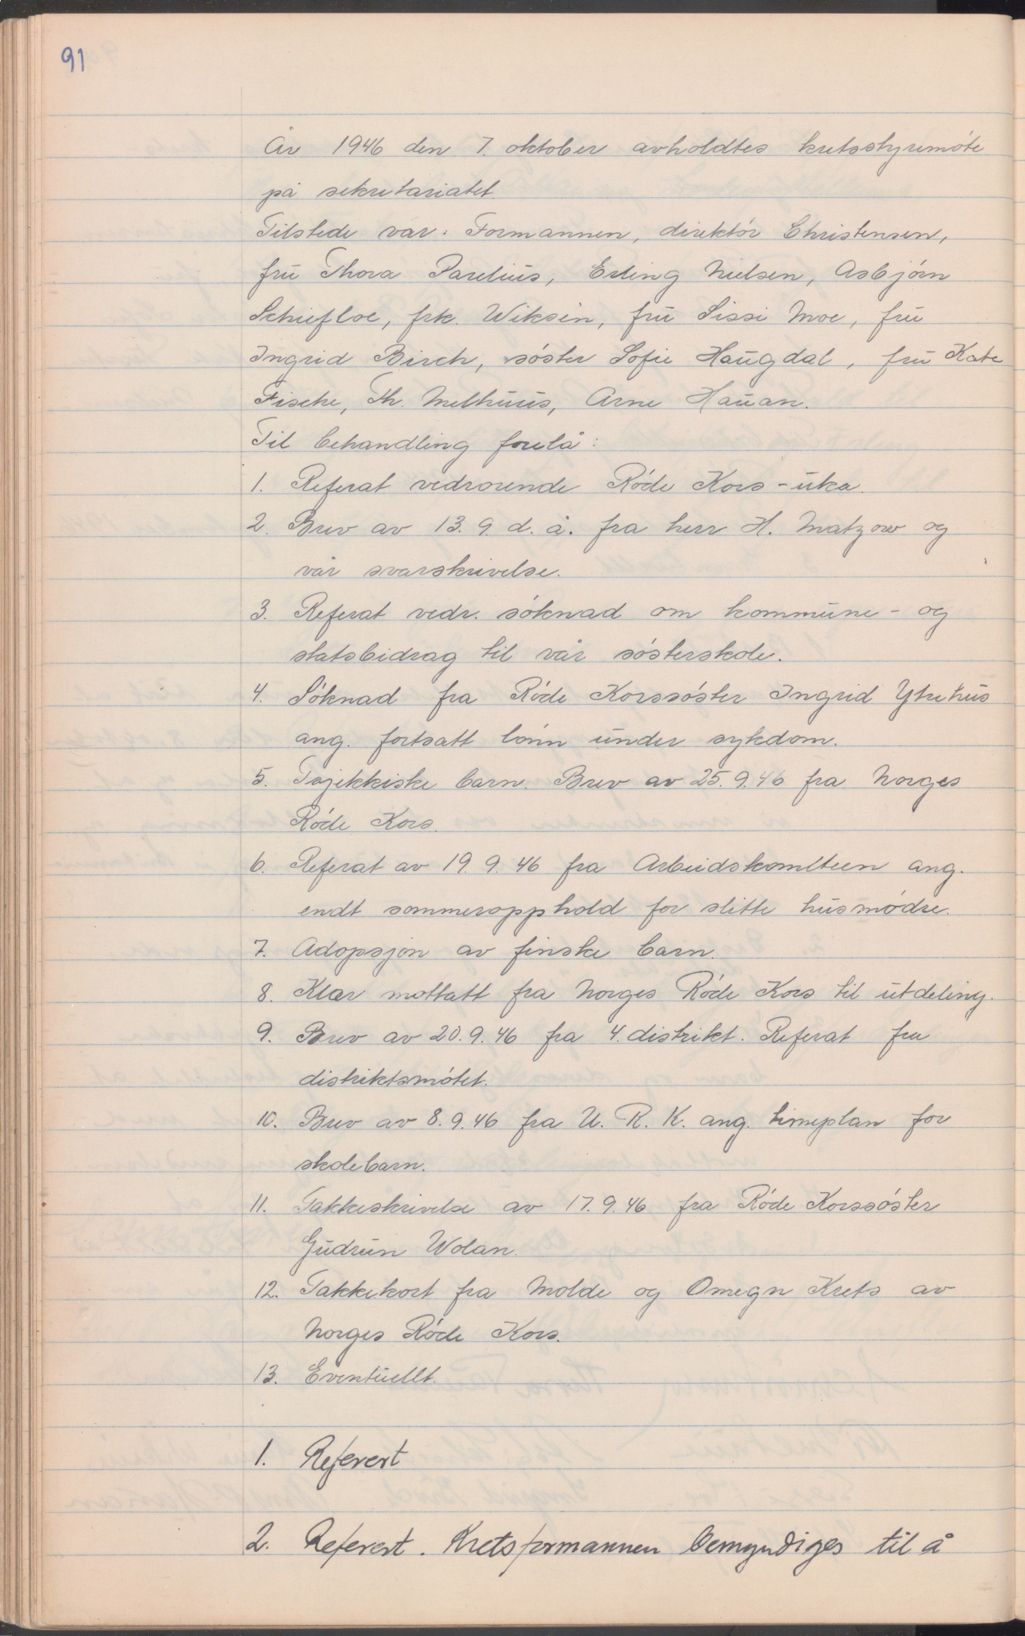 91
År 1946 den 7. oktober avholdtes kretsstyremöte
på sekretariatet.
Tilstede var: Formannen, direktör Christensen,
fru Thora Parelius, Erling Nielsen, Asbjörn
Schiefloe, frk. Wiksèn, fru Sissi Moe, fru
Ingrid Birch, söster Sofie Haugdal, fru Kate
Fische, Th. Melhuus, Arne Hauan.
Til behandling forelå:
1. Referat vedrorende Röde Kors-uka.
2. Brev av 13.9 d.å. fra herr H. Matzow og
vår svarskrivelse.
3. Referat vedr. söknad om kommune- og
statsbidrag til vår sösterskole.
4. Söknad fra Röde Korssöster Ingrid Ytrehus
ang. fortsatt lönn under sykdom.
5. Tsjekkiske barn. Brev av 25.9.46 fra Norges
Röde Kors.
6. Referat av 19.9.46 fra Arbeidskomiteen ang.
endt sommeropphold for slitte husmödre.
7. Adopsjon av finske barn.
8. Klær mottatt fra Norges Röde Kors til utdeling.
9. Brev av 20.9.46 fra 4. distrikt. Referat fra
distriktsmötet.
10. Brev av 8.9.46 fra U. R. K. ang. timeplan for
skolebarn.
11. Takkeskrivelse av 17.9.46 fra Röde Korssöster
Gudrun Wolan.
12. Takkekort fra Molde og Omegn Krets av
Norges Röde Kors.
13. Eventuellt.
1. Referert
2. Referert. Kretsformannen bemyndiges til å